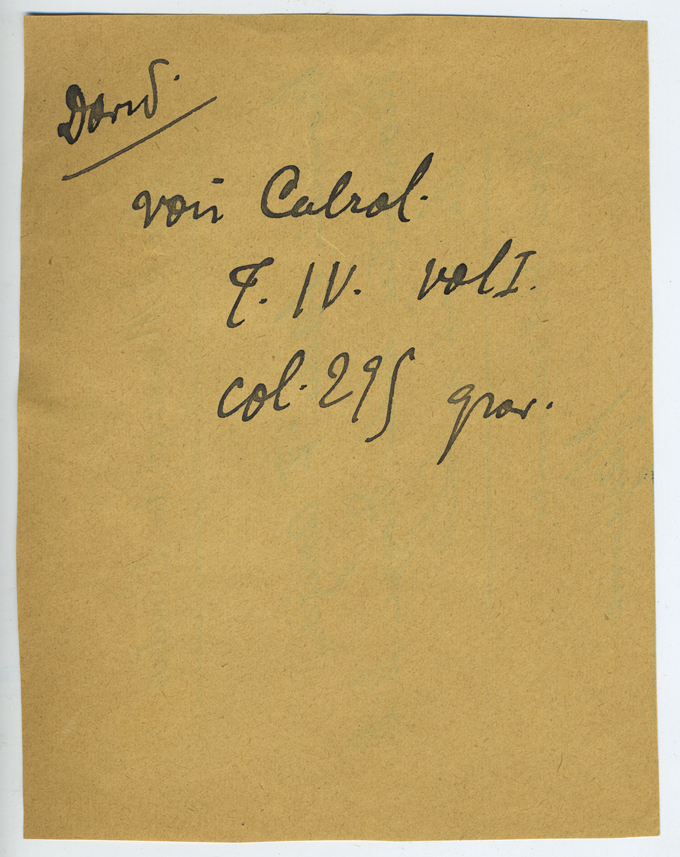 David.
voir Cabrol.
T. IV. vol I.
col. 295 grav.